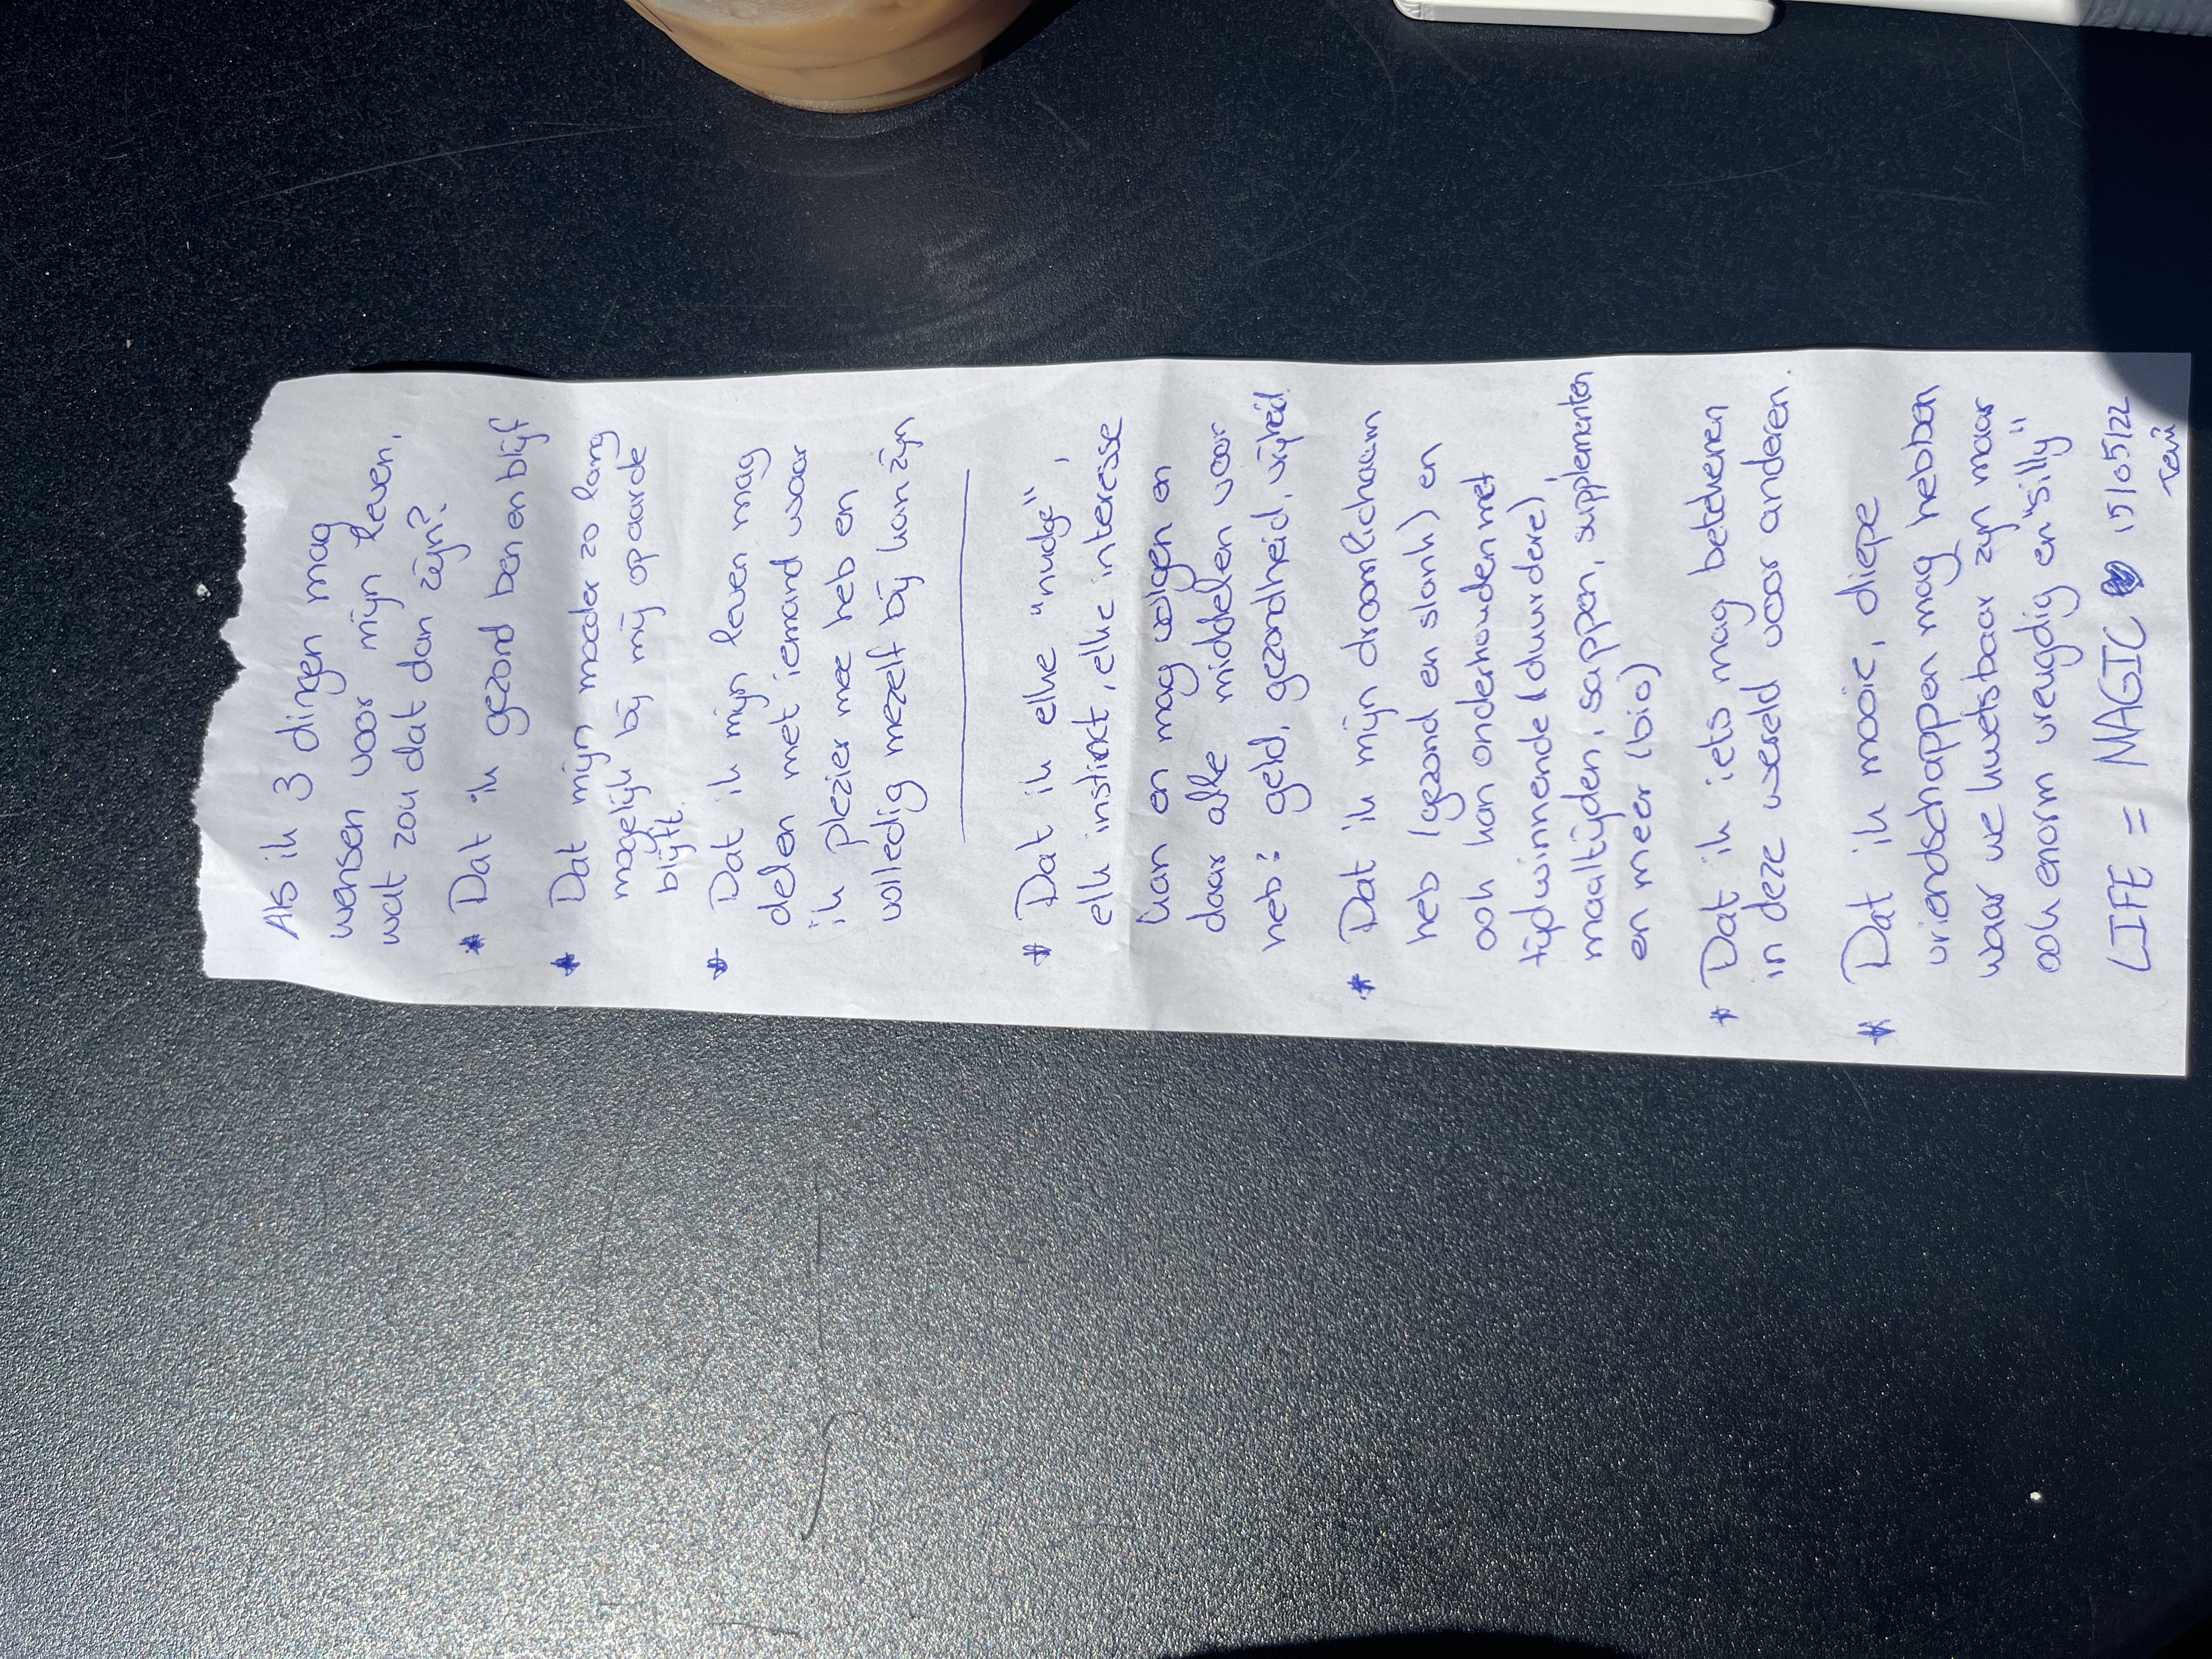 Als ik 3 dingen mag
wensen voor mijn leven,
wat zou dat dan zijn?
* Dat ik gezond ben en blijf
* Dat mijn moeder zo lang
mogelijk bij mij op aarde
blijft.
* Dat ik mijn leven mag
delen met iemand waar
ik plezier mee heb en
volledig mezelf bij kan zijn
* Dat ik elke "nudge",
elk instinct, elke interesse
kan en mag volgen en
daar alle middelen voor
heb: geld, gezondheid, vrijheid.
* Dat ik mijn droomlichaam
heb (gezond en slank) en
ook kan onderhouden met
tijdwinnende (duurdere),
maaltijden, sappen, supplementen
en meer (bio)
* Dat ik iets mag betekenen
in deze wereld voor anderen.
* Dat ik mooie, diepe
vriendschappen mag hebben
waar we kwetsbaar zijn maar
ook enorm vreugdig en "silly"
LIFE = MAGIC 15/05/22